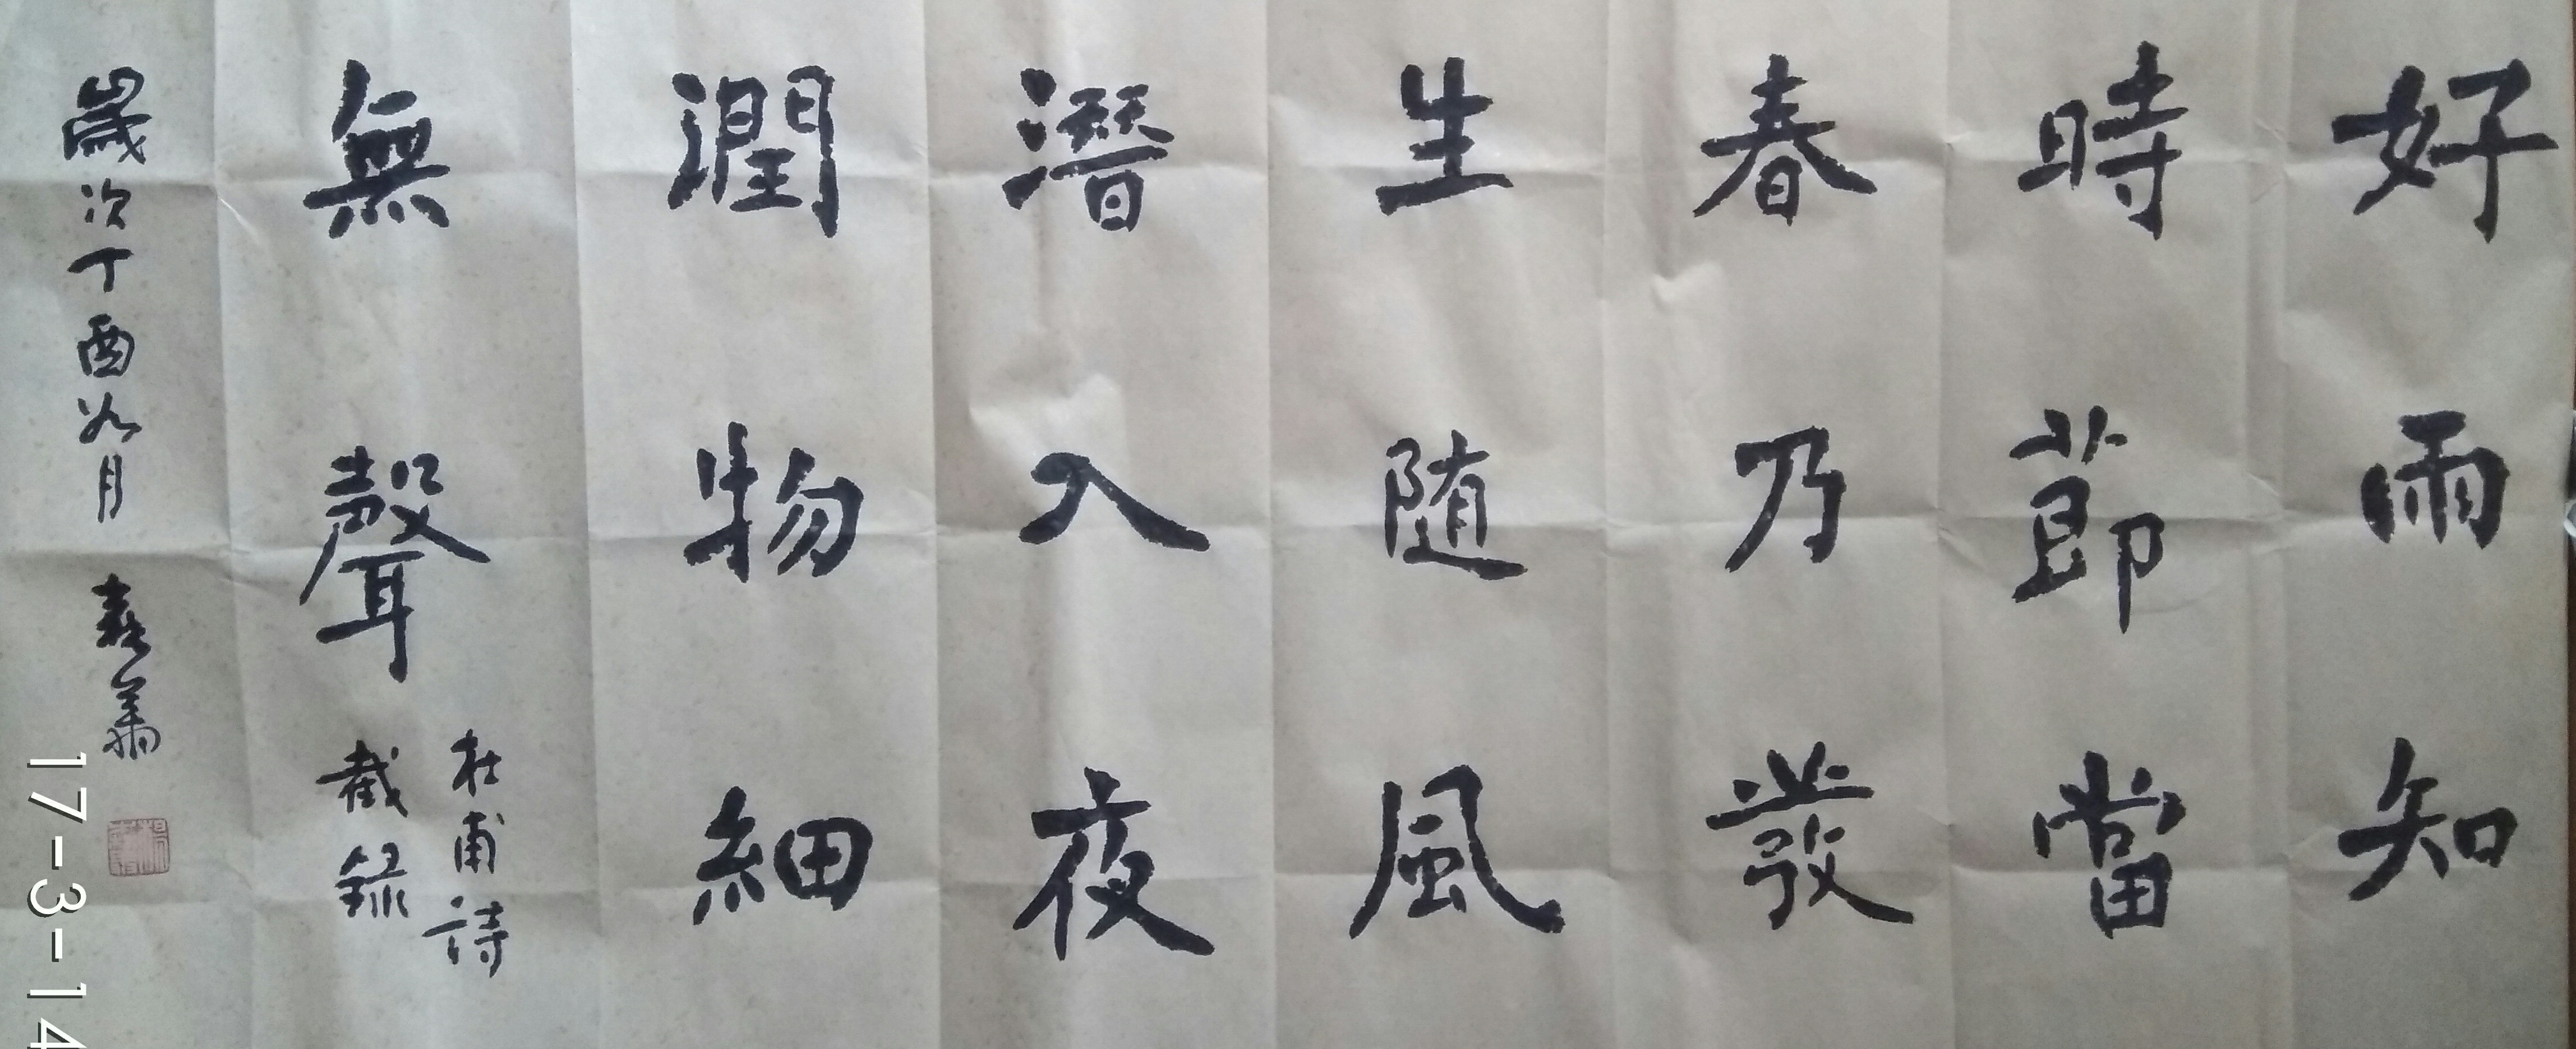 好雨知
時節當
春乃發
生随風
潛入夜
潤物細
無聲
杜甫詩
截録
歲次丁酉如月
17-3-14